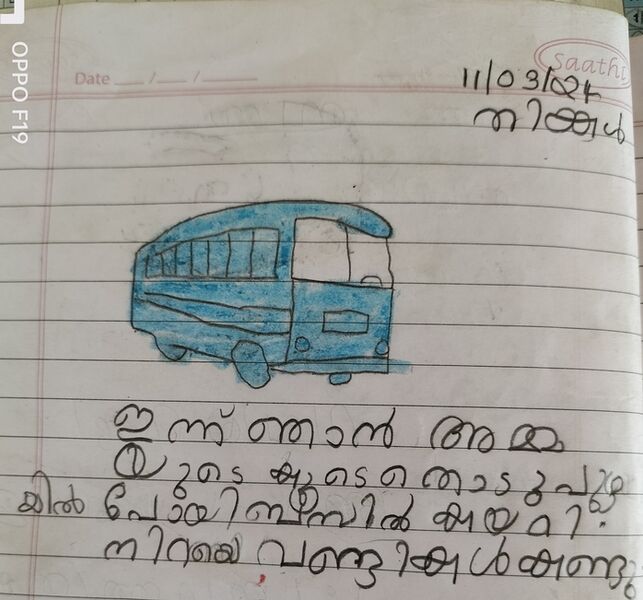 OPPO F19
Date __/__/____
Saathi
11/03/024
തിങ്കൾ
ഇന്ന് ഞാൻ അമ്മ
യുടെ കൂടെ തൊടുപുഴ
യിൽ പോയി ബസിൽ കയറി.
നിറയെ വണ്ടികൾ കണ്ടു